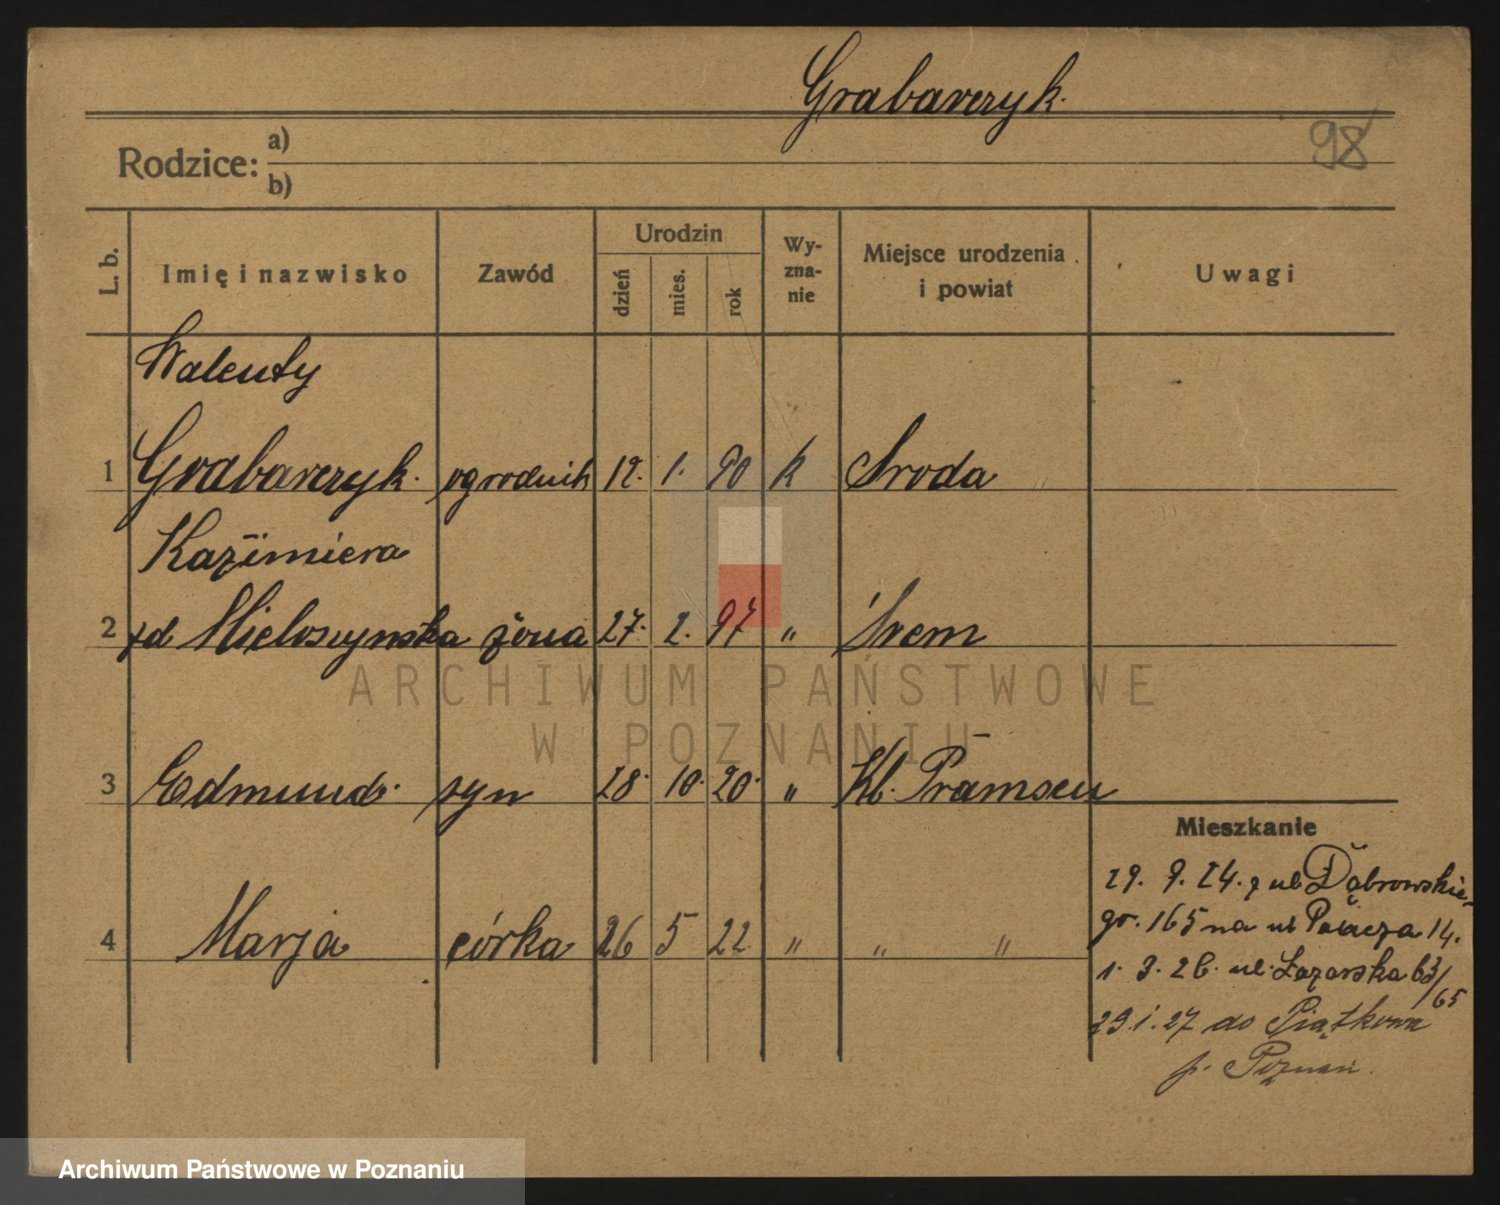 Grabarczyk.
98
Rodzice:
a)
b)
L. b.
Imię i nazwisko
Zawód
Urodzin
dzień
mies.
rok
Wy-
zna-
nie
Miejsce urodzenia
i powiat
Uwagi
Walenty
1 Grabarczyk. ogrodnik 12. 1. 90 k Sroda
Kazimiera
2 zd Mieloszynska żona 27. 2. 97 " Śrem
3 Edmund. syn 28. 10. 20. " Kl. Pramsen
4 Marja córka 26 5 22 " " "
Mieszkanie
29. 9. 24. z ul. Dąbrowskie-
go. 165 na ul 14.
1. 3. 26. ul. Łazarska 63/
65
29.1.27 do Piątkowa
p. Poznań.
ARCHIWUM PAŃSTWOWE
W POZNANIU
Archiwum Państwowe w Poznaniu